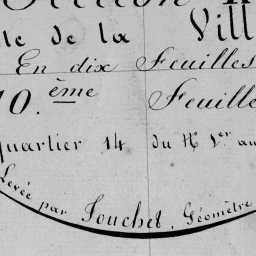 de la Vill
En dix Feuilles
10.ème Feuille
quartier 14 du N 1er au
Levée par Fouchet, Géomètre